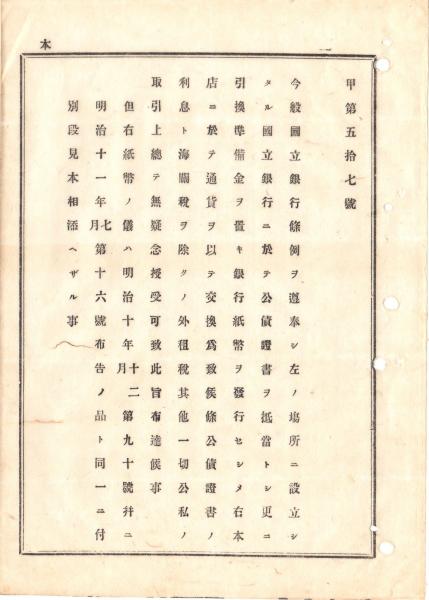 甲第五拾七號
今般國立銀行條例ヲ遵奉シ左ノ塲所ニ設立シ
タル國立銀行ニ於テ公債證書ヲ抵當トシ更ニ
引換準備金ヲ置キ銀行紙幣ヲ發行セシメ右本
店ニ於テ通貨ヲ以テ交換爲致候條公債證書ノ
利息ト海關稅ヲ除クノ外租稅其他一切公私ノ
取引上總テ無疑念授受可致此旨布達候事
但右紙幣ノ儀ハ明治十年十二月第九十號幷ニ
明治十一年七月第十六號布告ノ品ト同一ニ付
別段見本相添ヘザル事
本